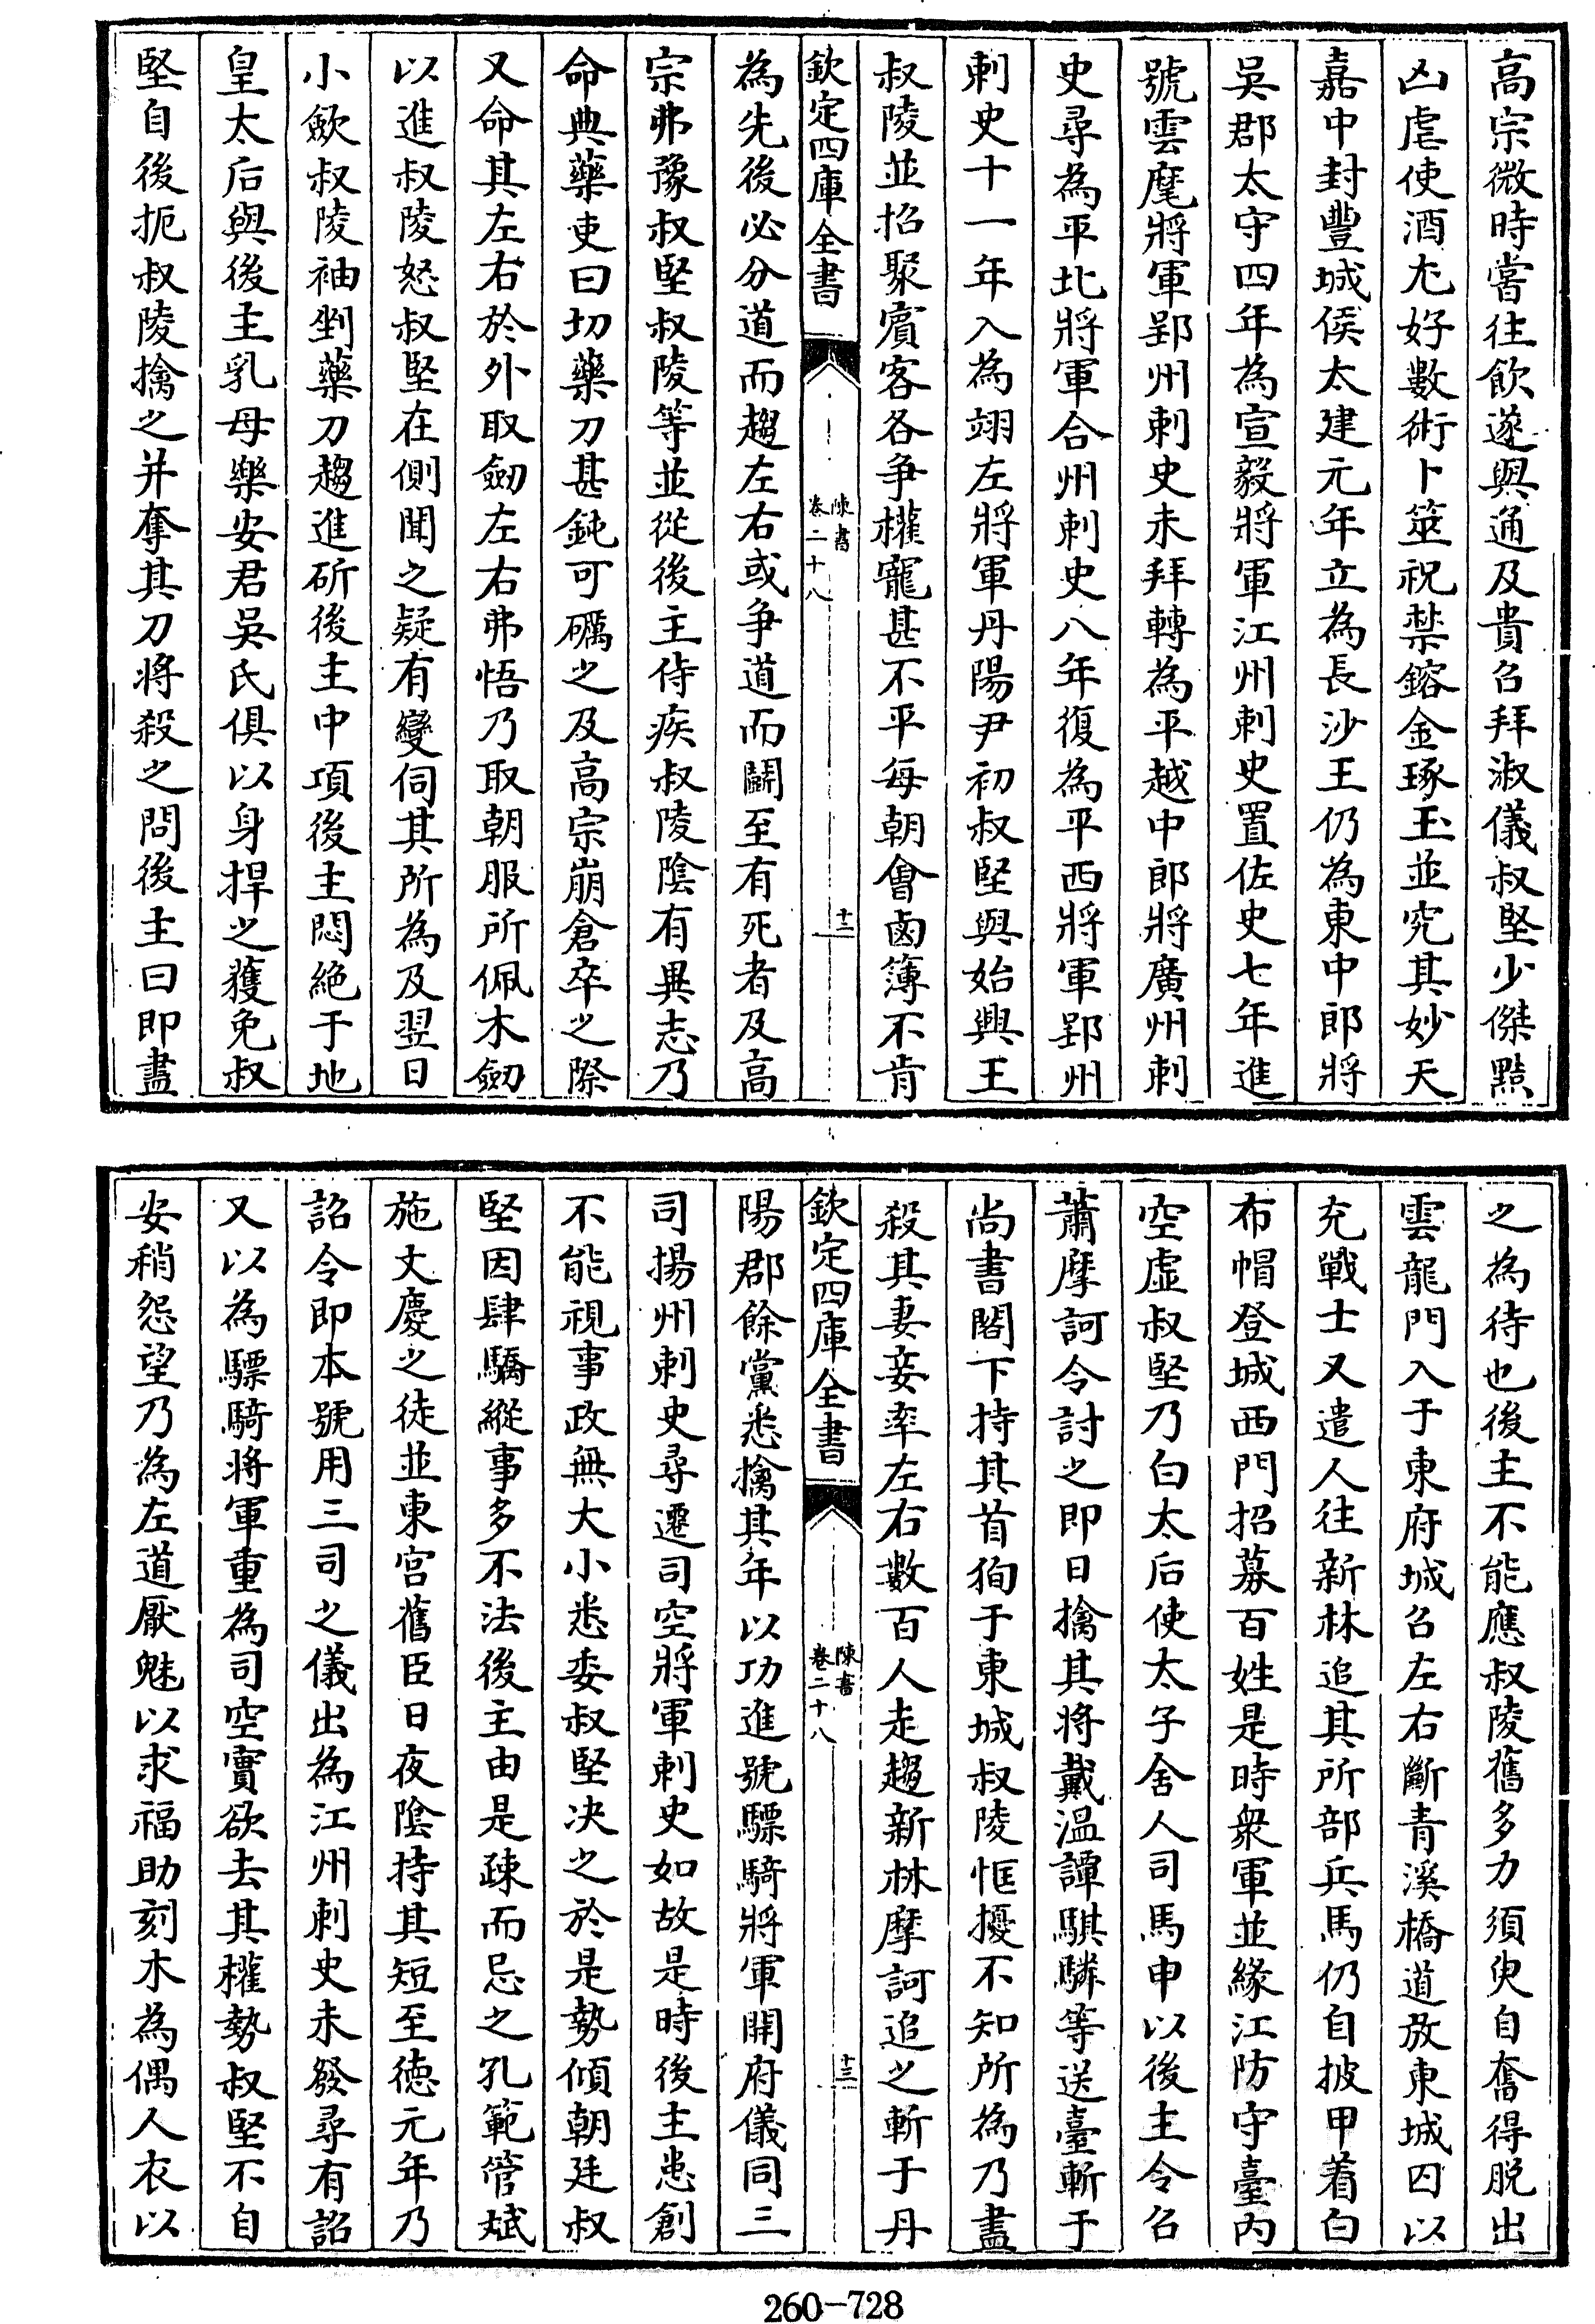 高宗微時嘗往飲遂與通及貴召拜淑儀叔堅少傑黠
凶虐使酒尤好數術卜筮祝禁鎔金琢玉並究其妙天
嘉中封豐城侯太建元年立為長沙王仍為東中郎將
吳郡太守四年為宣毅將軍江州刺史置佐史七年進
號雲麾將軍郢州刺史未拜轉為平越中郎將廣州刺
史尋為平北將軍合州刺史八年復為平西將軍郢州
刺史十一年入為翊左將軍丹陽尹初叔堅與始興王
叔陵並招聚賓客各爭權寵甚不平每朝會鹵簿不肯
欽定四庫全書
陳書
卷二十八
十二
為先後必分道而趨左右或爭道而鬬至有死者及高
宗弗豫叔堅叔陵等並從後主侍疾叔陵陰有異志乃
命典藥吏曰切藥刀甚鈍可礪之及高宗崩倉卒之際
又命其左右於外取劒左右弗悟乃取朝服所佩木劒
以進叔陵怒叔堅在側聞之疑有變伺其所為及翌日
小歛叔陵袖剉藥刀趨進斫後主中項後主悶絶于地
皇太后與後主乳母樂安君吳氏俱以身捍之獲免叔
堅自後扼叔陵擒之并奪其刀將殺之問後主曰即盡
之為待也後主不能應叔陵舊多力須臾自奮得脫出
雲龍門入于東府城召左右斷青溪橋道放東城囚以
充戰士又遣人往新林追其所部兵馬仍自披甲着白
布帽登城西門招募百姓是時衆軍並緣江防守臺內
空虛叔堅乃白太后使太子舍人司馬申以後主令召
蕭摩訶令討之即日擒其將戴温譚騏驎等送臺斬于
尚書閣下持其首徇于東城叔陵恇擾不知所為乃盡
殺其妻妾率左右數百人走趨新林摩訶追之斬于丹
欽定四庫全書
陳書
卷二十八
十三
陽郡餘黨悉擒其年以功進號驃騎將軍開府儀同三
司揚州刺史尋遷司空將軍刺史如故是時後主患創
不能視事政無大小悉委叔堅决之於是勢傾朝廷叔
堅因肆驕縱事多不法後主由是疎而忌之孔範管斌
施文慶之徒並東宮舊臣日夜陰持其短至德元年乃
詔令即本號用三司之儀出為江州刺史未發尋有詔
又以為驃騎將軍重為司空實欲去其權勢叔堅不自
安稍怨望乃為左道厭魅以求福助刻木為偶人衣以
260-728